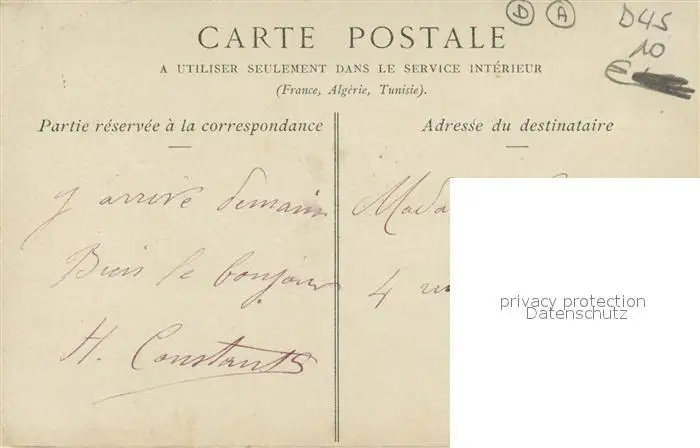 D A D45
10
CARTE POSTALE
A UTILISER SEULEMENT DANS LE SERVICE INTÉRIEUR
(France, Algérie, Tunisie).
Partie réservée à la correspondance
Adresse du destinataire
J'arrive demain
Bien le bonjour
H. Constant
Mada
4 ru
privacy protection
Datenschutz